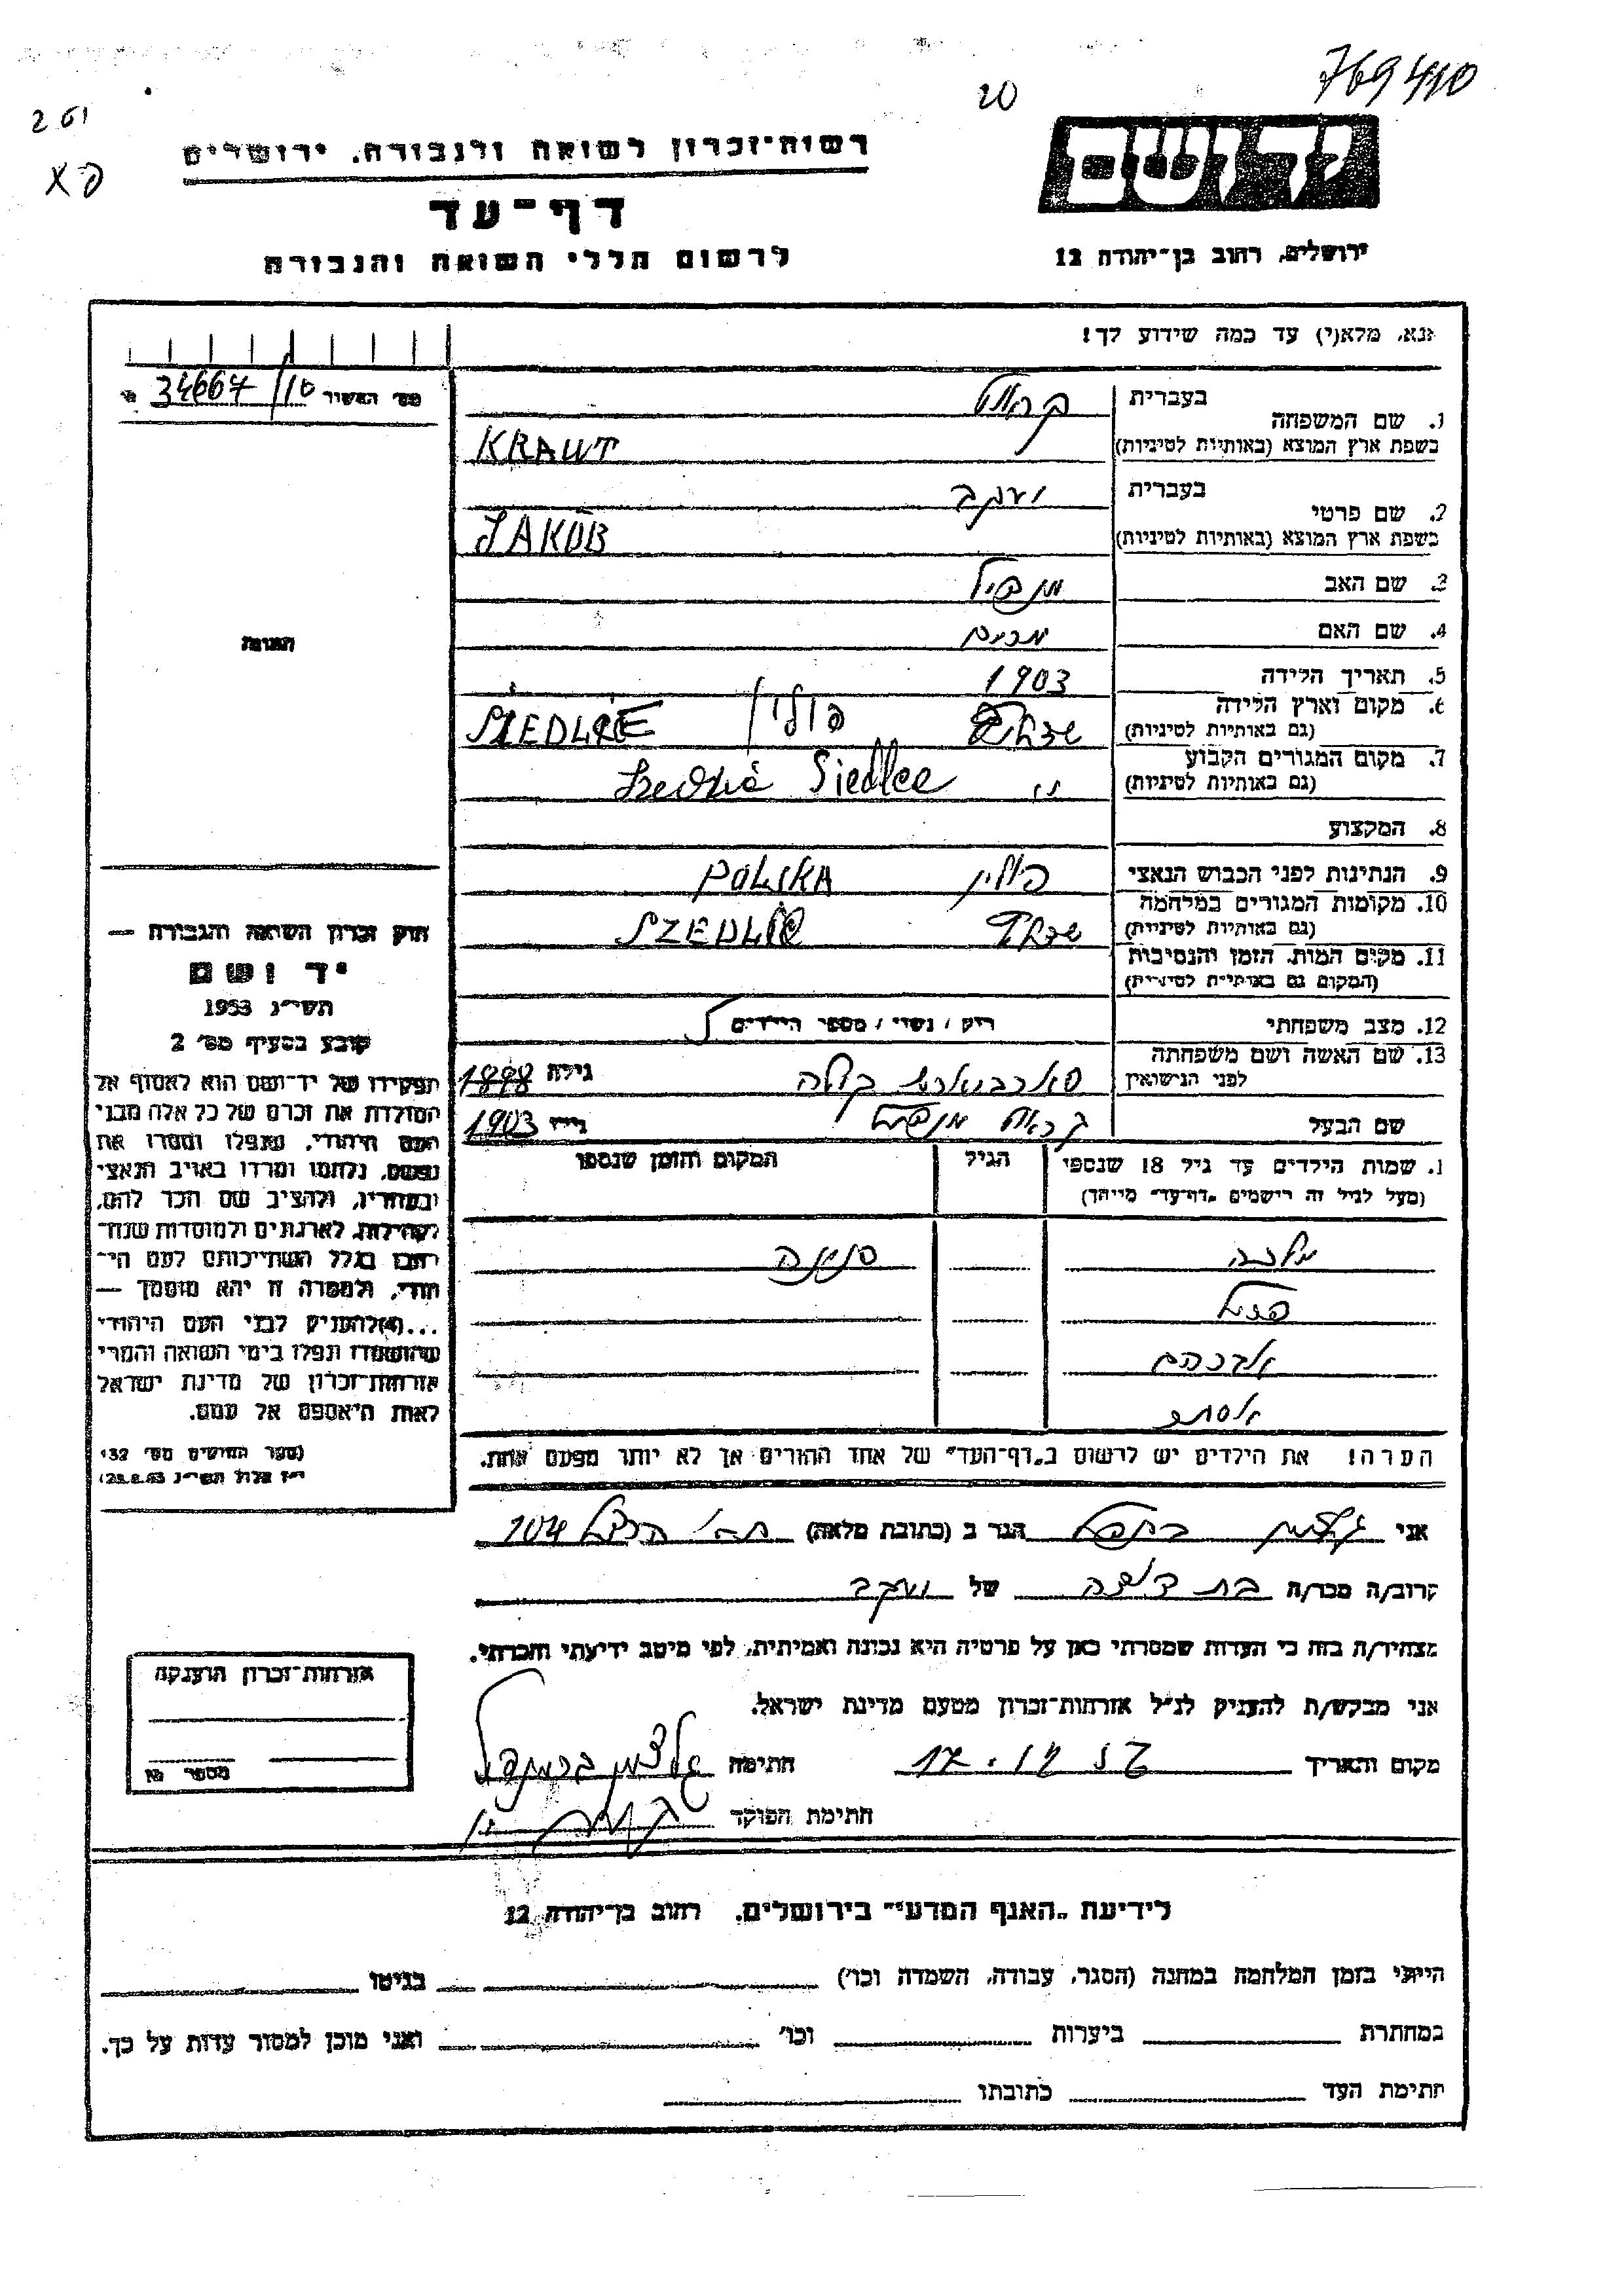 769410
20
201
רשות־זכרון לשואה ולגבורה, ירושלים
דף־עד
לרשום חללי השואה והגבורה
יד ושם
ירושלים, רחוב בן־יהודה 12
נא, מלא(י) עד כמה שידוע לך!
מס׳ האשור 34667/10
1. שם המשפחה
בעברית
בשפת ארץ המוצא (באותיות לטיניות) KRAUT
2. שם פרטי
בעברית יעקב
בשפת ארץ המוצא (באותיות לטיניות) JAKÓB
3. שם האב
4. שם האם מרים
5. תאריך הלידה 1903
6. מקום וארץ הלידה
(גם באותיות לטיניות) פולין
7. מקום המגורים הקבוע
(גם באותיות לטיניות) Siedlce
8. המקצוע
9. הנתינות לפני הכבוש הנאצי פולין POLSKA
10. מקומות המגורים במלחמה
(גם באותיות לטיניות)
11. מקום המות, הזמן והנסיבות
(המקום גם באותיות לטיניות)
12. מצב משפחתי רוק / נשוי / מספר הילדים 5
13. שם האשה ושם משפחתה
לפני הנישואין גילה 1898
שם הבעל גילו 1903
שמות הילדים עד גיל 18 שנספו
(מעל לגיל זה רישמים „דף־עד״ מיוחד)
הגיל
המקום והזמן שנספו
מלכה
אברהם
אסתר
הערה! את הילדים יש לרשום ב„דף־העד״ של אחד ההורים אך לא יותר מפעם אחת.
התמונה
חוק זכרון השואה והגבורה —
יד ושם
תשי״ג 1953
קובע בסעיף מס׳ 2
תפקידו של יד־ושם הוא לאסוף אל
המולדת את זכרם של כל אלה מבני
העם היהודי, שנפלו ומסרו את
נפשם, נלחמו ומרדו באויב הנאצי
ובעוזריו, ולהציב שם וזכר להם,
לקהילות, לארגונים ולמוסדות שנח־
רבו בגלל השתייכותם לעם הי־
הודי, ולמטרה זו יהא מוסמך —
...(4) להעניק לבני העם היהודי
שהושמדו ונפלו בימי השואה והמרי
אזרחות־זכרון של מדינת ישראל
לאות היאספם אל עמם.
(ספר החוקים מס׳ 132
י״ז אלול תשי״ג 28.8.53)
אני הגר ב (כתובת מלאה) 104
קרוב/ה מכר/ה של יעקב
מצהיר/ה בזה כי העדות שמסרתי כאן על פרטיה היא נכונה ואמיתית, לפי מיטב ידיעתי והכרתי.
אני מבקש/ת להעניק לנ״ל אזרחות־זכרון מטעם מדינת ישראל.
מקום ותאריך 17.12.57 חתימה
חתימת הפוקד
אזרחות־זכרון הוענקה
מספר №
לידיעת „האגף המדעי״ בירושלים, רחוב בן־יהודה 12
הייתי בזמן המלחמה במחנה (הסגר, עבודה, השמדה וכו׳) בגיטו
במחתרת ביערות וכו׳ ואני מוכן למסור עדות על כך.
חתימת העד כתובתו